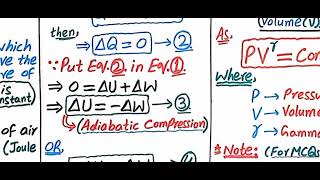 which
ve the
re of
is
nstant)
of air
(Joule
then,
⇒ ΔQ = 0 → ②
∵ Put Eq.② in Eq.①
⇒ 0 = ΔU + ΔW
⇒ ΔU = -ΔW → ③
(Adiabatic Compression)
OR,
Volume(V)
As,
PV^γ = Con
Where,
P → Press
V → Volum
γ → Gamm
*Note: (For MCQs